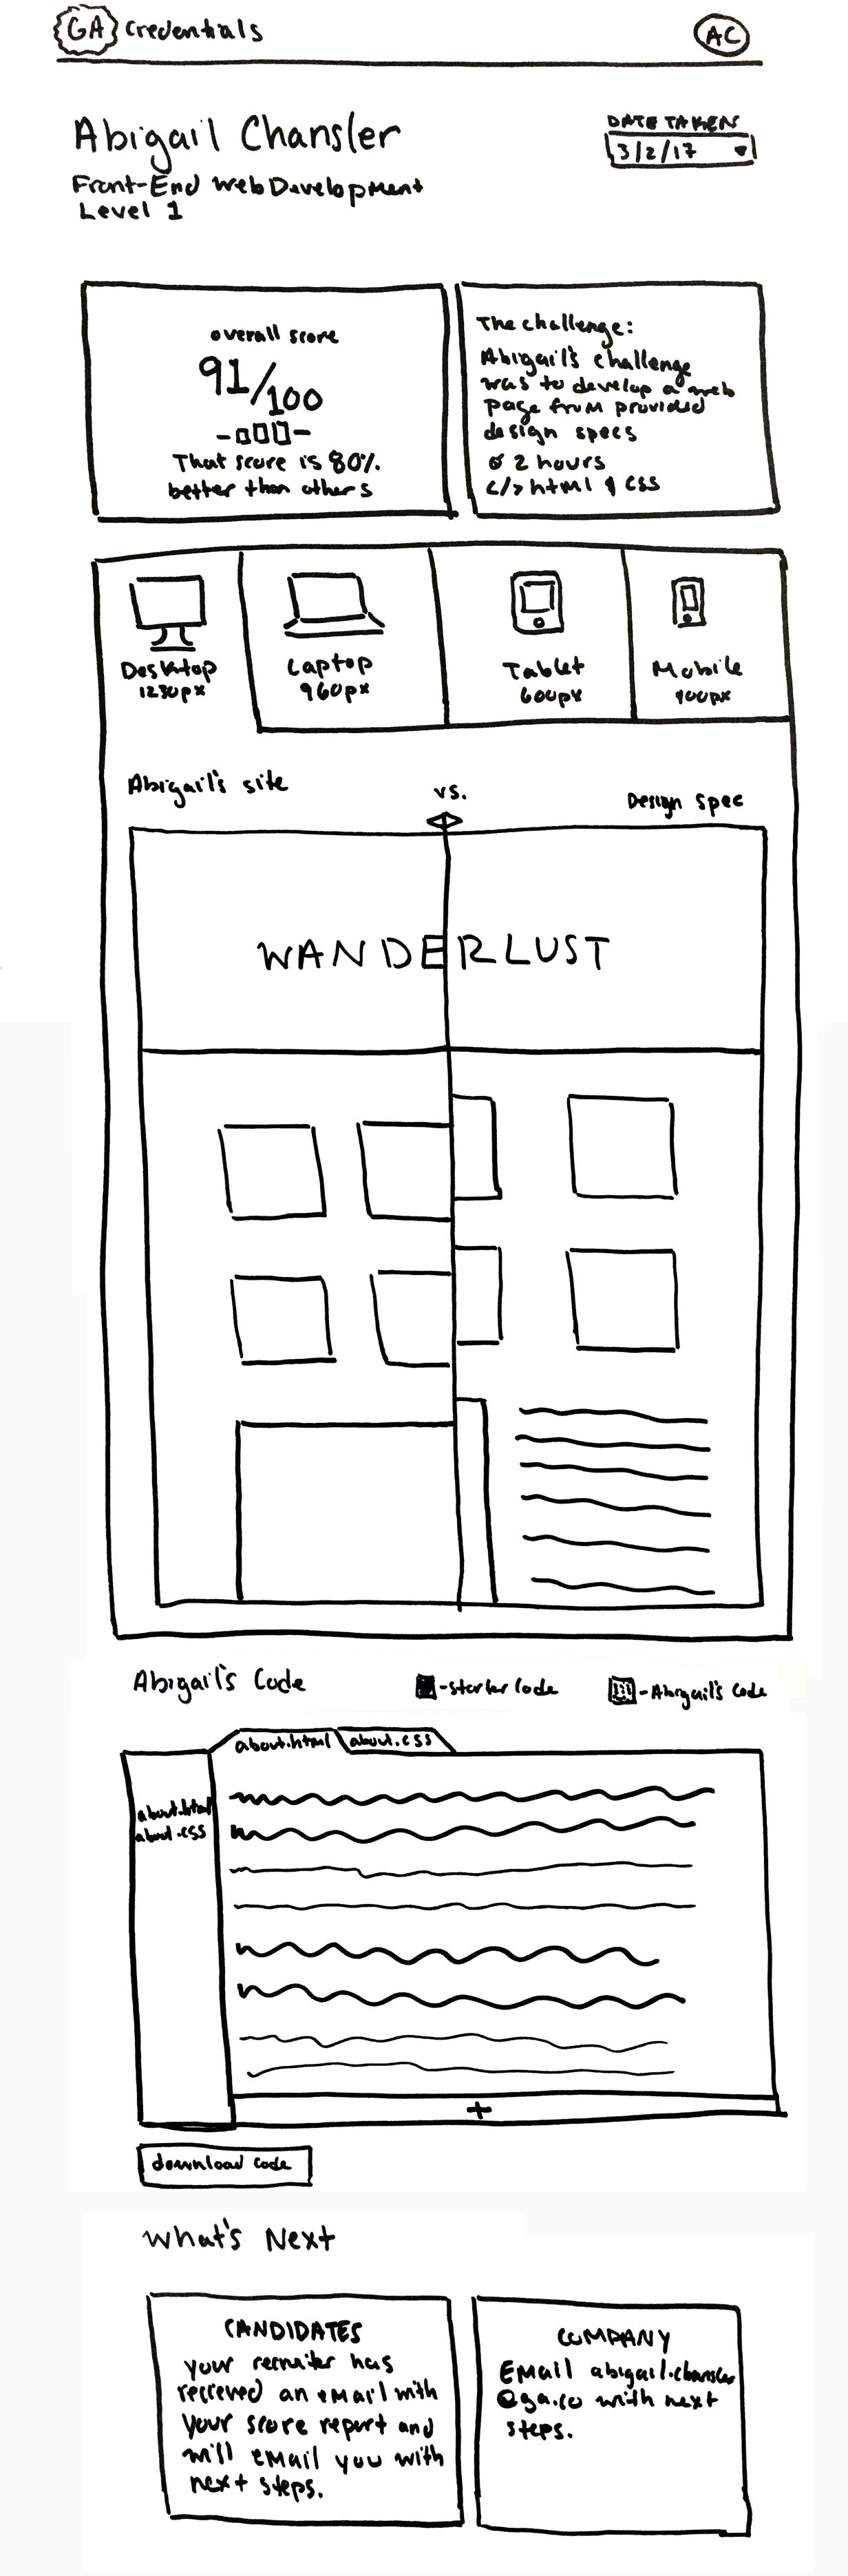 GA Credentials
AC
Abigail Chansler
Front-End Web Development
Level 1
DATE TAKEN
3/2/17
overall score
91/100
That score is 80%
better than others
The challenge:
Abigail's challenge
was to develop a web
page from provided
design specs
2 hours
</> html & CSS
Desktop
1230px
Laptop
960px
Tablet
600px
Mobile
400px
Abigail's site
vs.
Design spec
WANDERLUST
Abigail's Code
-starter code
-Abigail's Code
about.html
about.css
about.html
about.css
+
download code
What's Next
CANDIDATES
your recruiter has
recieved an email with
your score report and
will email you with
next steps.
COMPANY
Email abigail.chansler
@ga.co with next
steps.